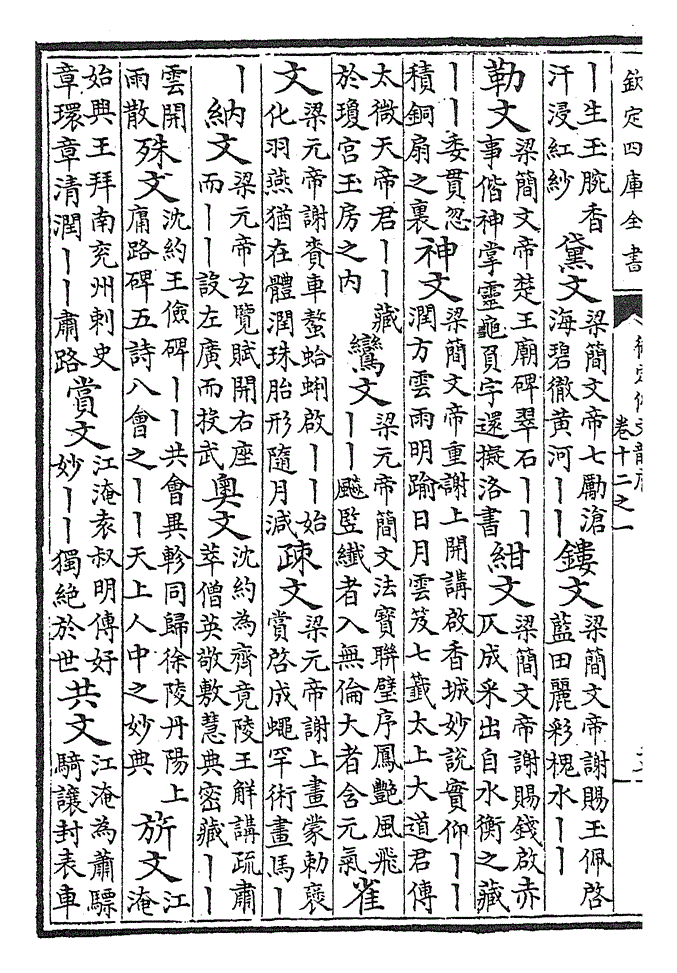 欽定四庫全書
御定佩文韻府
卷十二之一
｜生玉腕香汗浸紅紗 黛文 梁簡文帝七勵滄海碧徹黄河｜｜ 鏤文 梁簡文帝謝賜玉佩啓藍田麗彩槐水｜｜
勒文 梁簡文帝楚王廟碑翠石｜｜事偕神掌靈龜負字還擬洛書 紺文 梁簡文帝謝賜錢啟赤仄成采出自水衡之藏
｜｜委貫忽積銅扇之裏 神文 梁簡文帝重謝上開講啟香城妙說實仰｜｜潤方雲雨明踰日月雲笈七籖太上大道君傳
太微天帝君｜｜藏於瓊宮玉房之内 鸞文 梁元帝簡文法寶聯璧序鳳艷風飛｜｜飈竪纖者入無倫大者含元氣 雀
文 梁元帝謝賚車螯蛤蜊啟｜｜始化羽燕猶在體潤珠胎形隨月減 疎文 梁元帝謝上畫蒙勅褒賞啓成蠅罕術畫馬｜
｜ 納文 梁元帝玄覽賦開右座而｜｜設左廣而投武 奥文 沈約為齊竟陵王解講疏肅萃僧英敬敷慧典密藏｜｜
雲開雨散 殊文 沈約王儉碑｜｜共會異軫同歸徐陵丹陽上庸路碑五詩八會之｜｜天上人中之妙典 旂文 江淹
始興王拜南兖州刺史章環章清潤｜｜肅路 賞文 江淹袁叔明傳好妙｜｜獨絶於世 共文 江淹為蕭驃騎讓封表車